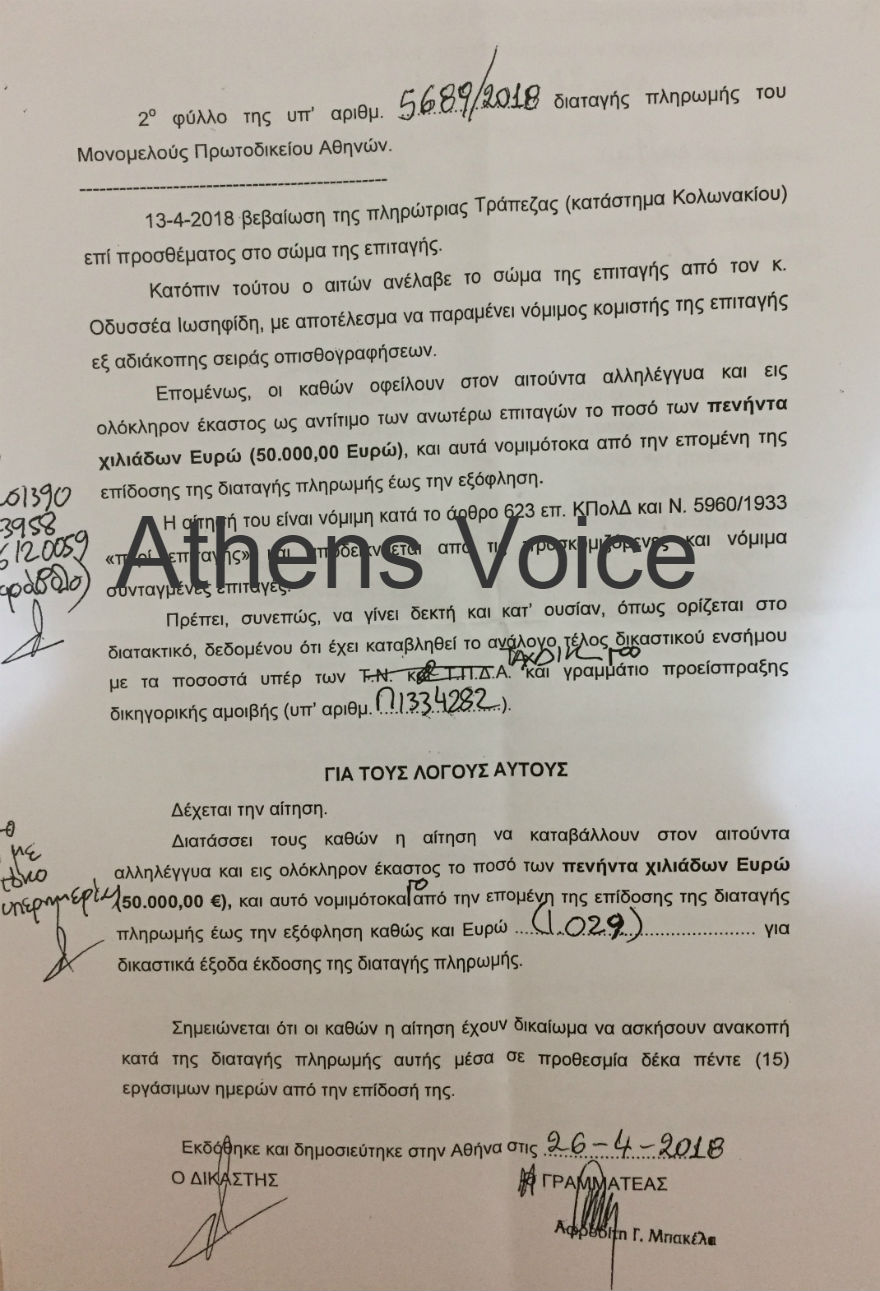 2ο φύλλο της υπ' αριθμ. 5689/2018 διαταγής πληρωμής του
Μονομελούς Πρωτοδικείου Αθηνών.
----------------------------------------------
13-4-2018 βεβαίωση της πληρώτριας Τράπεζας (κατάστημα Κολωνακίου)
επί προσθέματος στο σώμα της επιταγής.
Κατόπιν τούτου ο αιτών ανέλαβε το σώμα της επιταγής από τον κ.
Οδυσσέα Ιωσηφίδη, με αποτέλεσμα να παραμένει νόμιμος κομιστής της επιταγής
εξ αδιάκοπης σειράς οπισθογραφήσεων.
Επομένως, οι καθών οφείλουν στον αιτούντα αλληλέγγυα και εις
ολόκληρον έκαστος ως αντίτιμο των ανωτέρω επιταγών το ποσό των πενήντα
χιλιάδων Ευρώ (50.000,00 Ευρώ), και αυτά νομιμότοκα από την επομένη της
επίδοσης της διαταγής πληρωμής έως την εξόφληση.
01390
3958
6120059
Η αίτησή του είναι νόμιμη κατά το άρθρο 623 επ. ΚΠολΔ και Ν. 5960/1933
«περί επιταγής» και αποδεικνύεται από τις προσκομιζόμενες και νόμιμα
συνταγμένες επιταγές.
Athens Voice
Πρέπει, συνεπώς, να γίνει δεκτή και κατ' ουσίαν, όπως ορίζεται στο
διατακτικό, δεδομένου ότι έχει καταβληθεί το ανάλογο τέλος δικαστικού ενσήμου
με τα ποσοστά υπέρ των Τ.Ν. και Τ.Π.Δ.Α. και γραμμάτιο προείσπραξης
δικηγορικής αμοιβής (υπ' αριθμ. Π1334282).
ΓΙΑ ΤΟΥΣ ΛΟΓΟΥΣ ΑΥΤΟΥΣ
Δέχεται την αίτηση.
Διατάσσει τους καθών η αίτηση να καταβάλλουν στον αιτούντα
αλληλέγγυα και εις ολόκληρον έκαστος το ποσό των πενήντα χιλιάδων Ευρώ
(50.000,00 €), και αυτό νομιμότοκα από την επομένη της επίδοσης της διαταγής
πληρωμής έως την εξόφληση καθώς και Ευρώ ...(1.029)................... για
δικαστικά έξοδα έκδοσης της διαταγής πληρωμής.
με
τόκο
υπερημερίας
Σημειώνεται ότι οι καθών η αίτηση έχουν δικαίωμα να ασκήσουν ανακοπή
κατά της διαταγής πληρωμής αυτής μέσα σε προθεσμία δέκα πέντε (15)
εργάσιμων ημερών από την επίδοσή της.
Εκδόθηκε και δημοσιεύτηκε στην Αθήνα στις 26-4-2018
Ο ΔΙΚΑΣΤΗΣ
Η ΓΡΑΜΜΑΤΕΑΣ
Αφροδίτη Γ. Μπακέλα